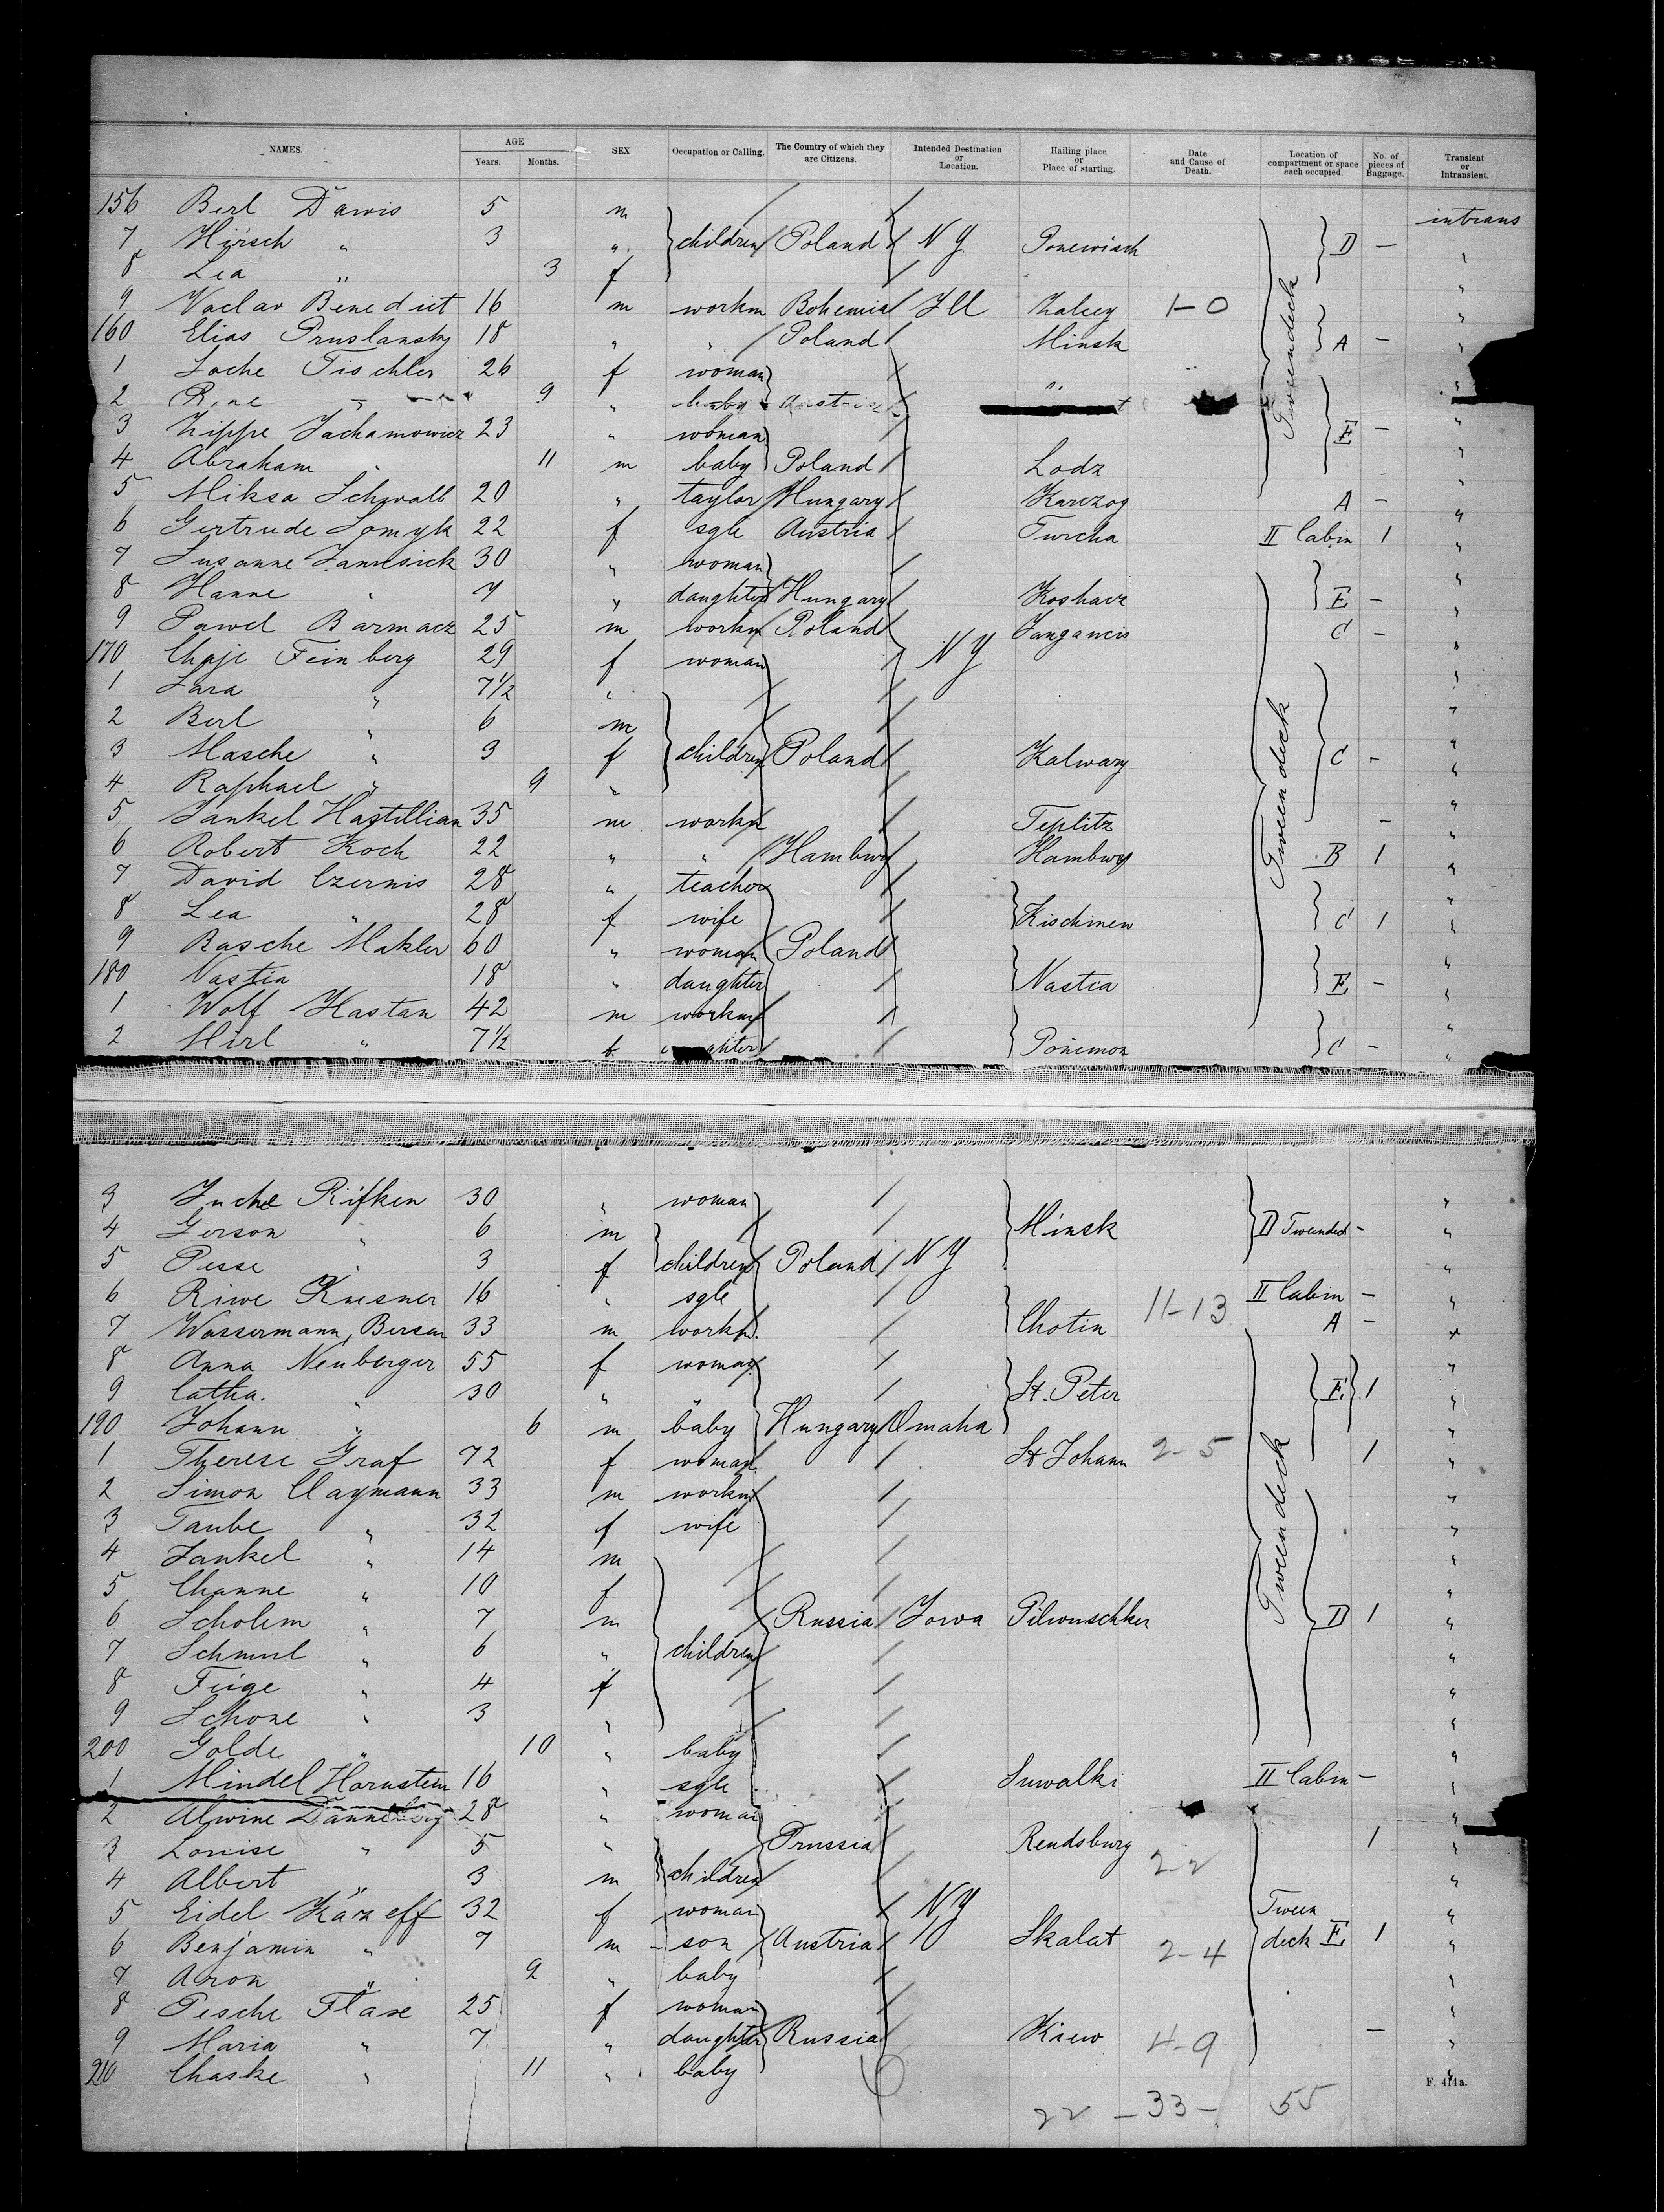 NAMES. AGE SEX Occupation or Calling. The Country of which they are Citizens. Intended Destination or Location. Hailing place or Place of starting. Date and Cause of Death. Location of compartment or space each occupied. No. of pieces of Baggage. Transient or Intransient.
Years. Months.
156 Berl Dawis 5 m intrans
7 Hirsch " 3 " children Poland N Y Ponewisch D - "
8 Lea " 3 f "
9 Vaclav Benedict 16 m workm Bohemia Ill 1-0 "
160 Elias Pruslansky 18 " " Poland Minsk A - "
1 Soche Tischler 26 f woman " "
2 9 " baby Austria "
3 Zippe Jachamowicz 23 " woman E - "
4 Abraham " 11 m baby Poland Lodz "
5 Miksa Schwalb 20 " taylor Hungary Karczog A - "
6 Gertrude Somyk 22 f sgle Austria Turcha II Cabin 1 "
7 Susanne 30 " woman "
8 Hanne " 7 " daughter Hungary E - "
9 Pawel Barmacz 25 m workm Poland C - "
170 Chaje Feinberg 29 f woman N Y "
1 Sara " 7 1/2 " "
2 Berl " 6 m "
3 Masche " 3 f children Poland Kalwary C - "
4 Raphael " 9 " "
5 Jankel 35 m workm Teplitz - "
6 Robert Koch 22 " " Hamburg Hamburg B 1 "
7 David Czernis 28 " teacher "
8 Lea " 28 f wife Kischinew C 1 "
9 Basche Makler 60 " woman Poland "
180 Nastia 18 " daughter Nastia E - "
1 Wolf Hastan 42 m workm "
2 Mirl " 7 1/2 f Ponemon C - "
Tweendeck
Tweendeck
3 Rifken 30 " woman "
4 Gerson " 6 m Minsk D Tweendeck - "
5 Pesse " 3 f children Poland N Y "
6 Riwe Kusner 16 " sgle II Cabin - "
7 Wassermann, 33 m workm. Chotin 11-13 A - "
8 Anna Neuberger 55 f woman "
9 Catha. " 30 " " St. Peter E 1 "
190 Johann " 6 m baby Hungary Omaha "
1 Therese Graf 72 f woman St Johann 2-5 1 "
2 Simon Claymann 33 m workm "
3 Taube " 32 f wife "
4 Jankel " 14 m "
5 Channe " 10 f "
6 Scholem " 7 m Russia Iowa Pilwuschker D 1 "
7 Schmul " 6 " children "
8 Feige " 4 f "
9 Schone " 3 " "
200 Golde " 10 " baby "
1 Mindel Hornstein 16 " sgle Suwalki II Cabin - "
2 Alwine Danneberg 28 " woman "
3 Louise " 5 " Prussia Rendsburg 1 "
4 Albert " 3 m children 2-2 "
5 Eidel Karzeff 32 f woman N Y Tween "
6 Benjamin " 7 m son Austria 10 Skalat 2-4 deck E 1 "
7 Aron " 9 " baby "
8 Pesche Flaxe 25 f woman "
9 Maria " 7 " daughter Russia Kiew 4-9 - "
210 Chaske " 11 " baby "
Tweendeck
F. 414a.
22 - 33 - 55